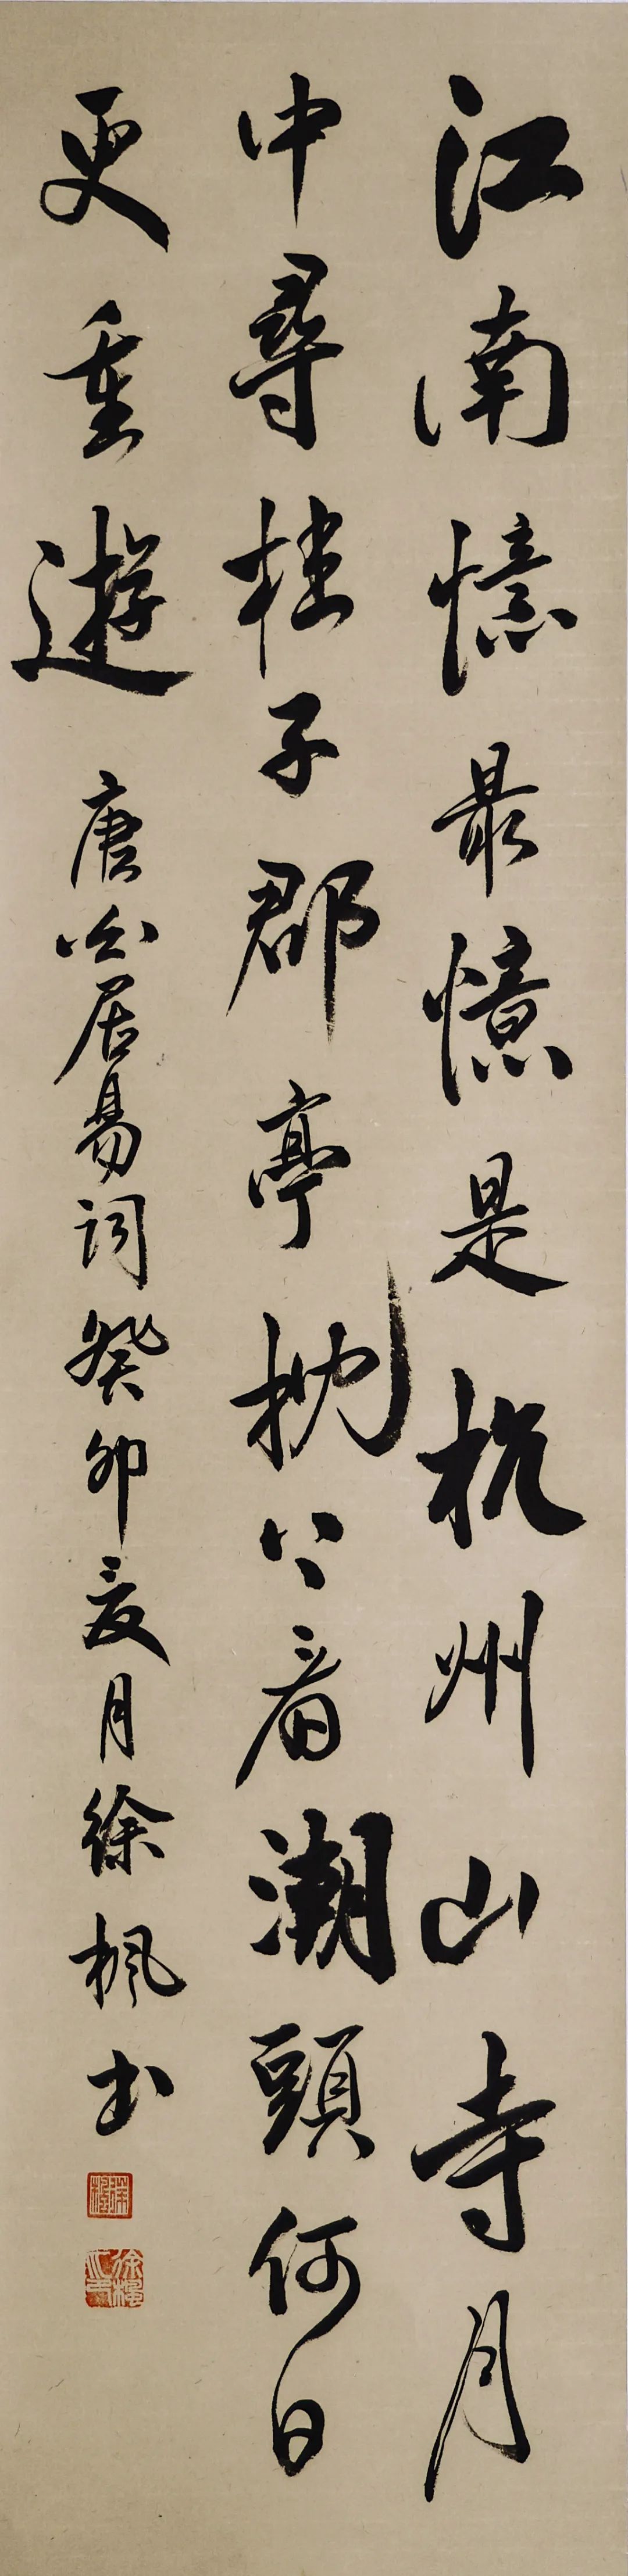 江南憶最憶是杭州山寺月
中尋桂子郡亭枕上看潮頭何日
更重遊
唐白居易詞癸卯夏月徐楓書
徐楓之印